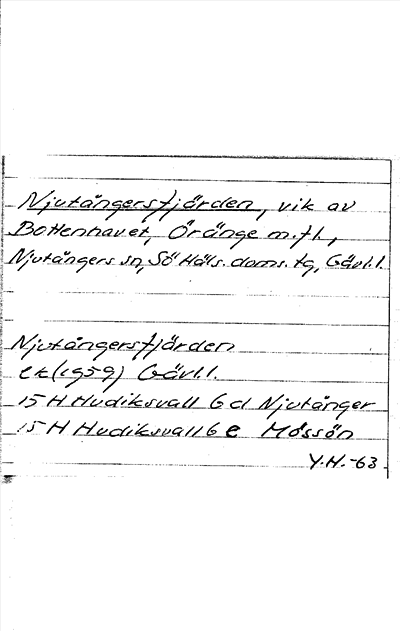 Njutångersfjärden, vik av
Bottenhavet, Öränge m.fl.,
Njutångers sn, Sö Häls. doms. tg, Gävl. l.
Njutångersfjärden
ek (1959) Gävl. l.
15 H Hudiksvall 6 d Njutånger
15 H Hudiksvall 6 e Mössön
Y.H.-63